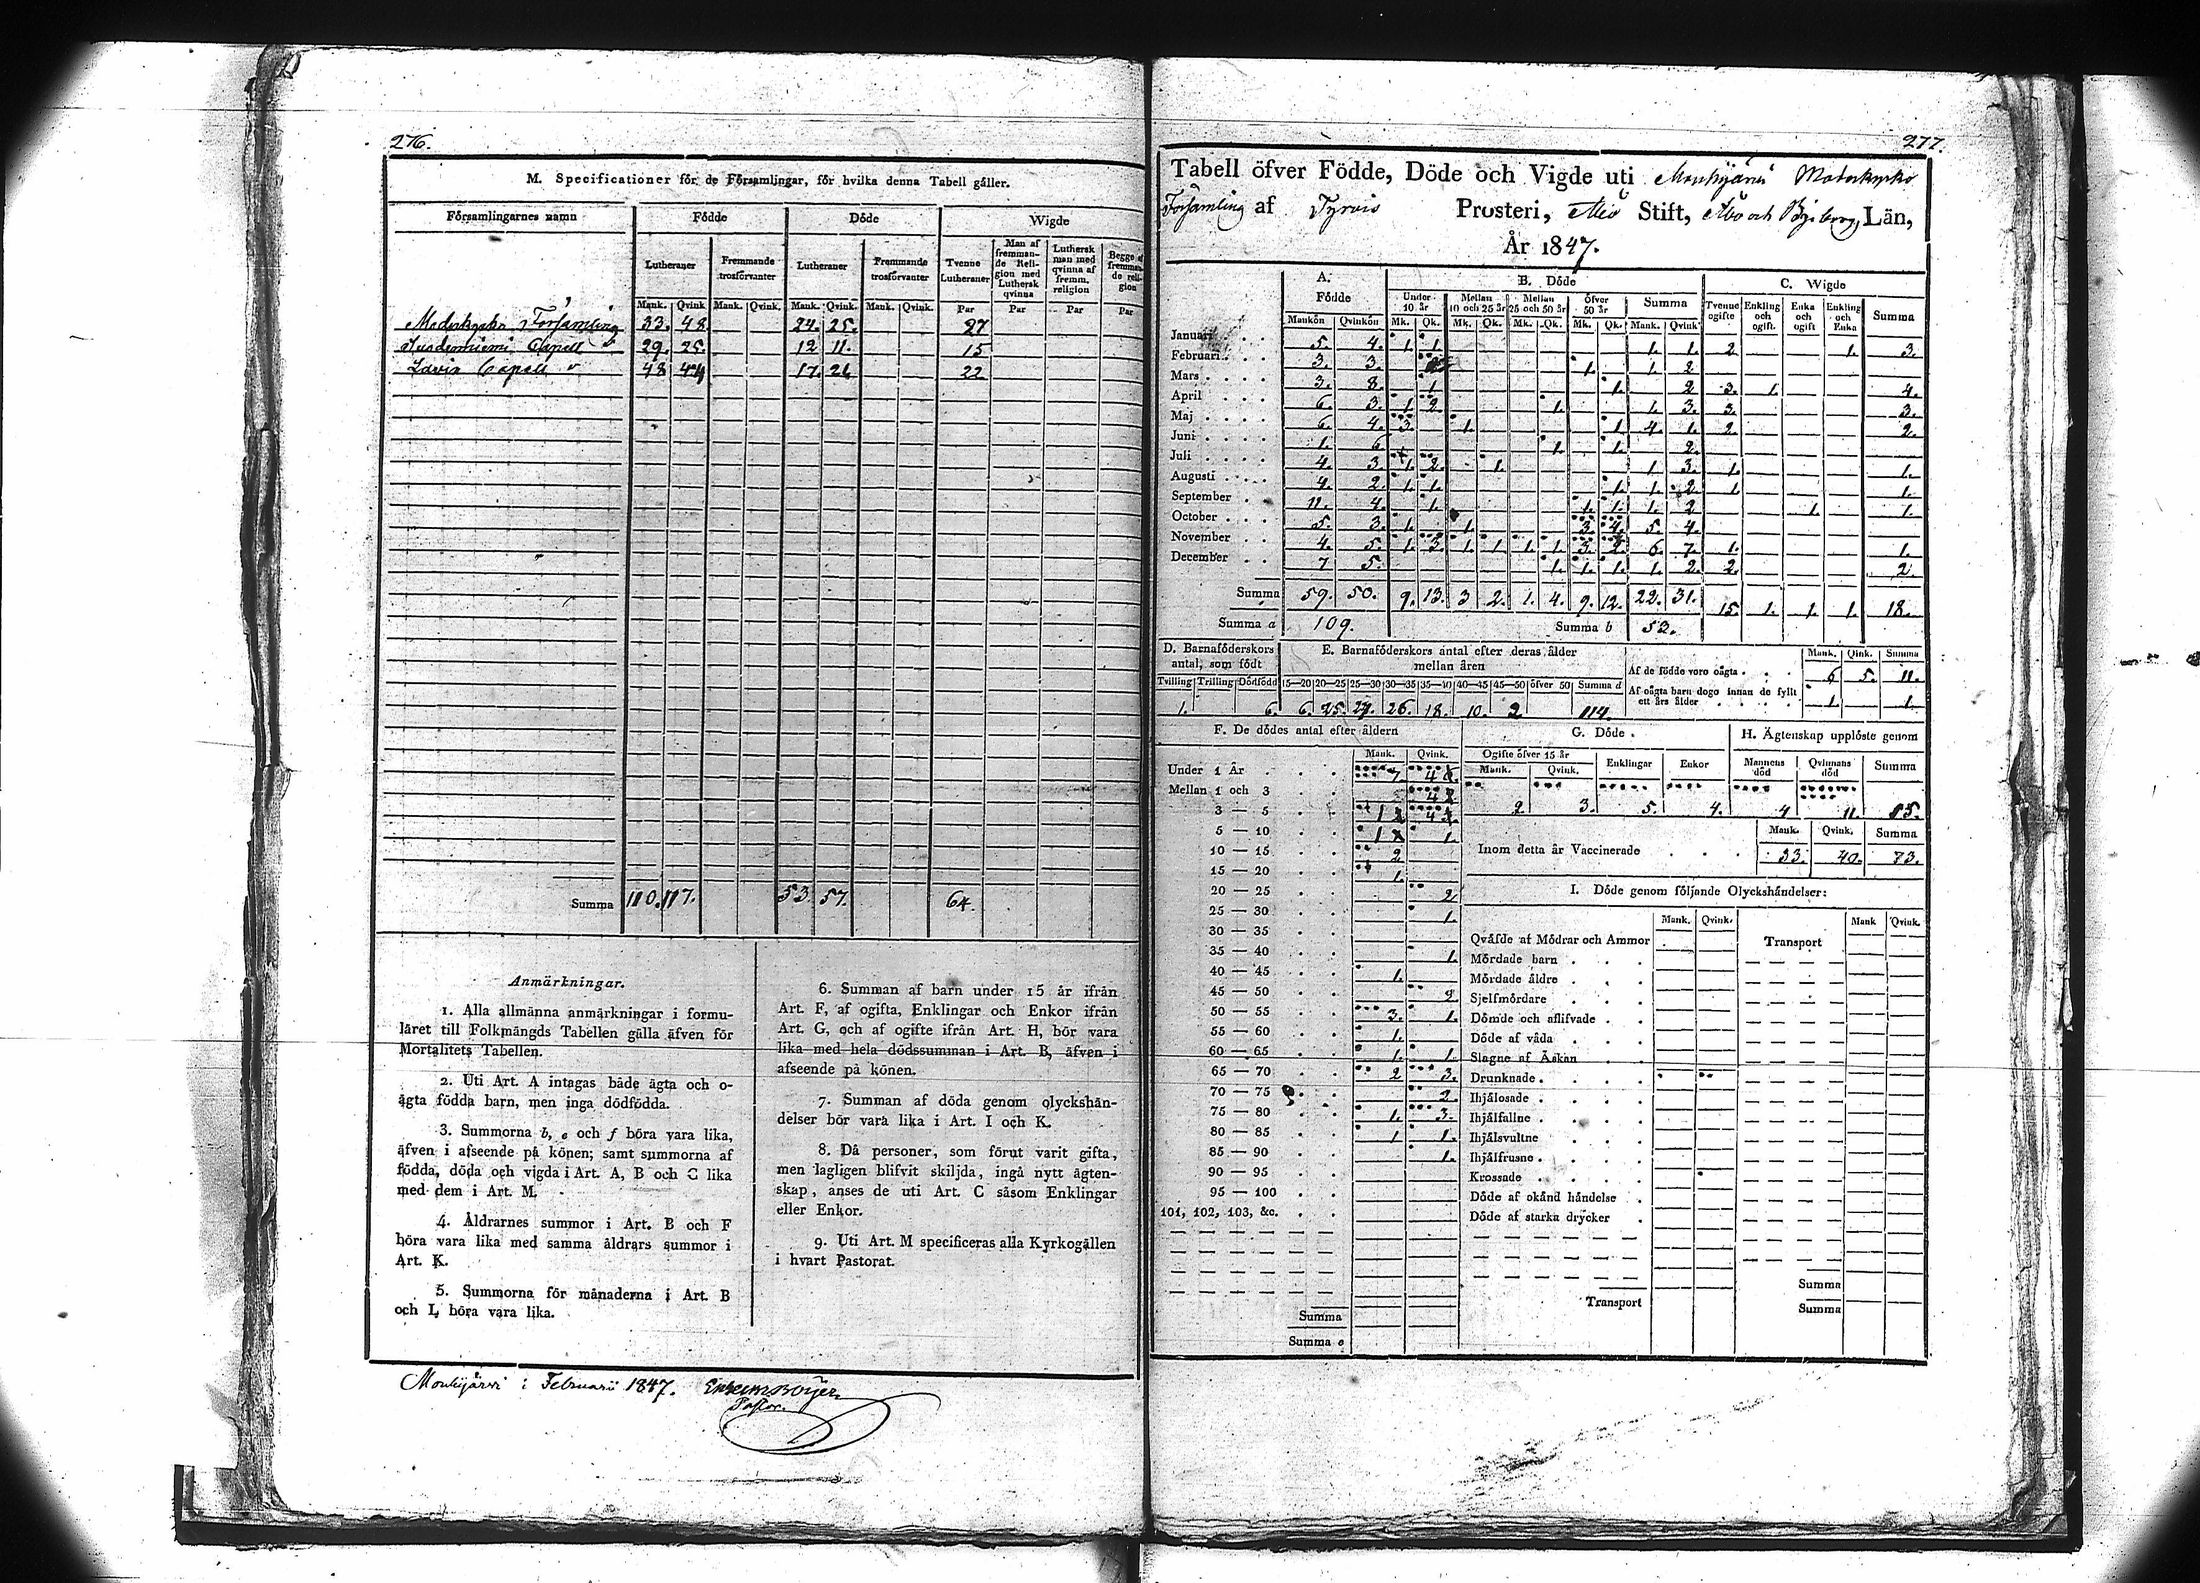 276.
M. Specificationer för de Församlingar, för hvilka denna Tabell gäller.
Församlingarnes namn Födde Döde Wigde
Lutheraner Fremmande trosförvanter Lutheraner Fremmande trosförvanter Tvenne Lutheraner Man af fremmande Religion med Luthersk qvinna Luthersk man med qvinna af fremm. religion Begge af fremmande religion
Mank. Qvink Mank. Qvink. Mank. Qvink. Mank. Qvink. Par Par Par Par
Moderkyrko Församling 33. 48. 24. 25. 27
Capell 29. 25. 12 11. 15
Lavia Capell 48 44 17. 21 22
Summa 110. 117. 53. 57. 64.
Anmärkningar.
1. Alla allmänna anmärkningar i formu-
läret till Folkmängds Tabellen gälla äfven för
Mortalitets Tabellen.
2. Uti Art. A intagas både ägta och o-
ägta födda barn, men inga dödfödda.
3. Summorna b, e och f böra vara lika,
äfven i afseende på könen; samt summorna af
födda, döda och vigda i Art. A, B och C lika
med dem i Art. M.
4. Åldrarnes summor i Art. B och F
böra vara lika med samma åldrars summor i
Art. K.
5. Summorna för månaderna i Art. B
och L böra vara lika.
6. Summan af barn under 15 år ifrån
Art. F, af ogifta, Enklingar och Enkor ifrån
Art. G, och af ogifte ifrån Art. H, bör vara
lika med hela dödssumman i Art. B, äfven i
afseende på könen.
7. Summan af döda genom olyckshän-
delser bör vara lika i Art. I och K.
8. Då personer, som förut varit gifta,
men lagligen blifvit skiljda, ingå nytt ägten-
skap, anses de uti Art. C såsom Enklingar
eller Enkor.
9. Uti Art. M specificeras alla Kyrkogällen
i hvart Pastorat.
Mouhijärvi i Februarii 1847.
Pastor.
277.
Tabell öfver Födde, Döde och Vigde uti Mouhijärvi Moderkyrko
Församling af Tyrvis Prosteri, Åbo Stift, Åbo och Björneborgs Län,
År 1847.
A. Födde B. Döde C. Wigde
Under 10 år Mellan 10 och 25 år Mellan 25 och 50 år öfver 50 år Summa Tvenne ogifte Enkling och ogift. Enka och ogift Enkling och Enka Summa
Mankön Qvinkön Mk. Qk. Mk. Qk. Mk. Qk. Mk. Qk. Mank. Qvink
Januari 5. 4. 1. 1. 1. 1. 2 1. 3.
Februari 3. 3. 1. 1. 2
Mars 3. 8. 1 1. 2 3. 1. 4.
April 6. 3. 1. 2. 1. 1. 3. 3. 3.
Maj 6. 4. 3. 1. 1 4. 1. 2 2.
Juni 1. 6 1. 1. 2.
Juli 4. 3. 1. 2. 1. 1 3. 1. 1.
Augusti 4. 2. 1. 1. 1. 1. 2. 1. 1.
September 11. 4. 1. 1. 1. 1. 2 1. 1.
October 5. 3. 1. 1. 3 4. 5. 4.
November 4. 5. 1. 3. 1. 1 1. 1. 3. 2. 6. 7. 1. 1.
December 7 5. 1. 1. 1. 1. 2. 2. 2.
Summa 59. 50. 9. 13. 3 2. 1. 4. 9. 12. 22. 31. 15. 1. 1. 1. 18.
Summa a 109. Summa b 53.
D. Barnaföderskors antal, som födt
Tvilling Trilling Dödfödd
1. 6.
E. Barnaföderskors antal efter deras ålder mellan åren
15—20 20—25 25—30 30—35 35—40 40—45 45—50 öfver 50 Summa d
6. 25. 27. 26. 18. 10. 2 114.
Mank. Qink. Summa
Af de födde voro oägta 6 5. 11.
Af oägta barn dogo innan de fyllt ett års ålder 1. 1.
F. De dödes antal efter åldern
Mank. Qvink.
Under 1 År 7 4
Mellan 1 och 3 4
3 — 5 1 4
5 — 10 1 1.
10 — 15 2
15 — 20 1.
20 — 25 2
25 — 30 1.
30 — 35
35 — 40 1.
40 — 45 1.
45 — 50 2
50 — 55 3. 1.
55 — 60 1.
60 — 65 1. 1.
65 — 70 2 3.
70 — 75 2
75 — 80 1. 3.
80 — 85 1 1.
85 — 90 1.
90 — 95
95 — 100
101, 102, 103, &c.
Summa
Summa e
G. Döde.
Ogifte öfver 15 år Enklingar Enkor
Mank. Qvink.
2 3. 5. 4.
H. Ägtenskap upplöste genom
Mannens död Qvinnans död Summa
4 11. 15.
Mank. Qvink. Summa
Inom detta år Vaccinerade 33. 40. 73.
I. Döde genom följande Olyckshändelser:
Mank. Qvink. Mank Qvink.
Qväfde af Mödrar och Ammor Transport
Mördade barn
Mördade äldre
Sjelfmördare
Dömde och aflifvade
Döde af våda
Slagne af Åskan
Drunknade
Ihjälosade
Ihjälfallne
Ihjälsvultne
Ihjälfrusne
Krossade
Döde af okänd händelse
Döde af starka drycker
Summa
Transport Summa